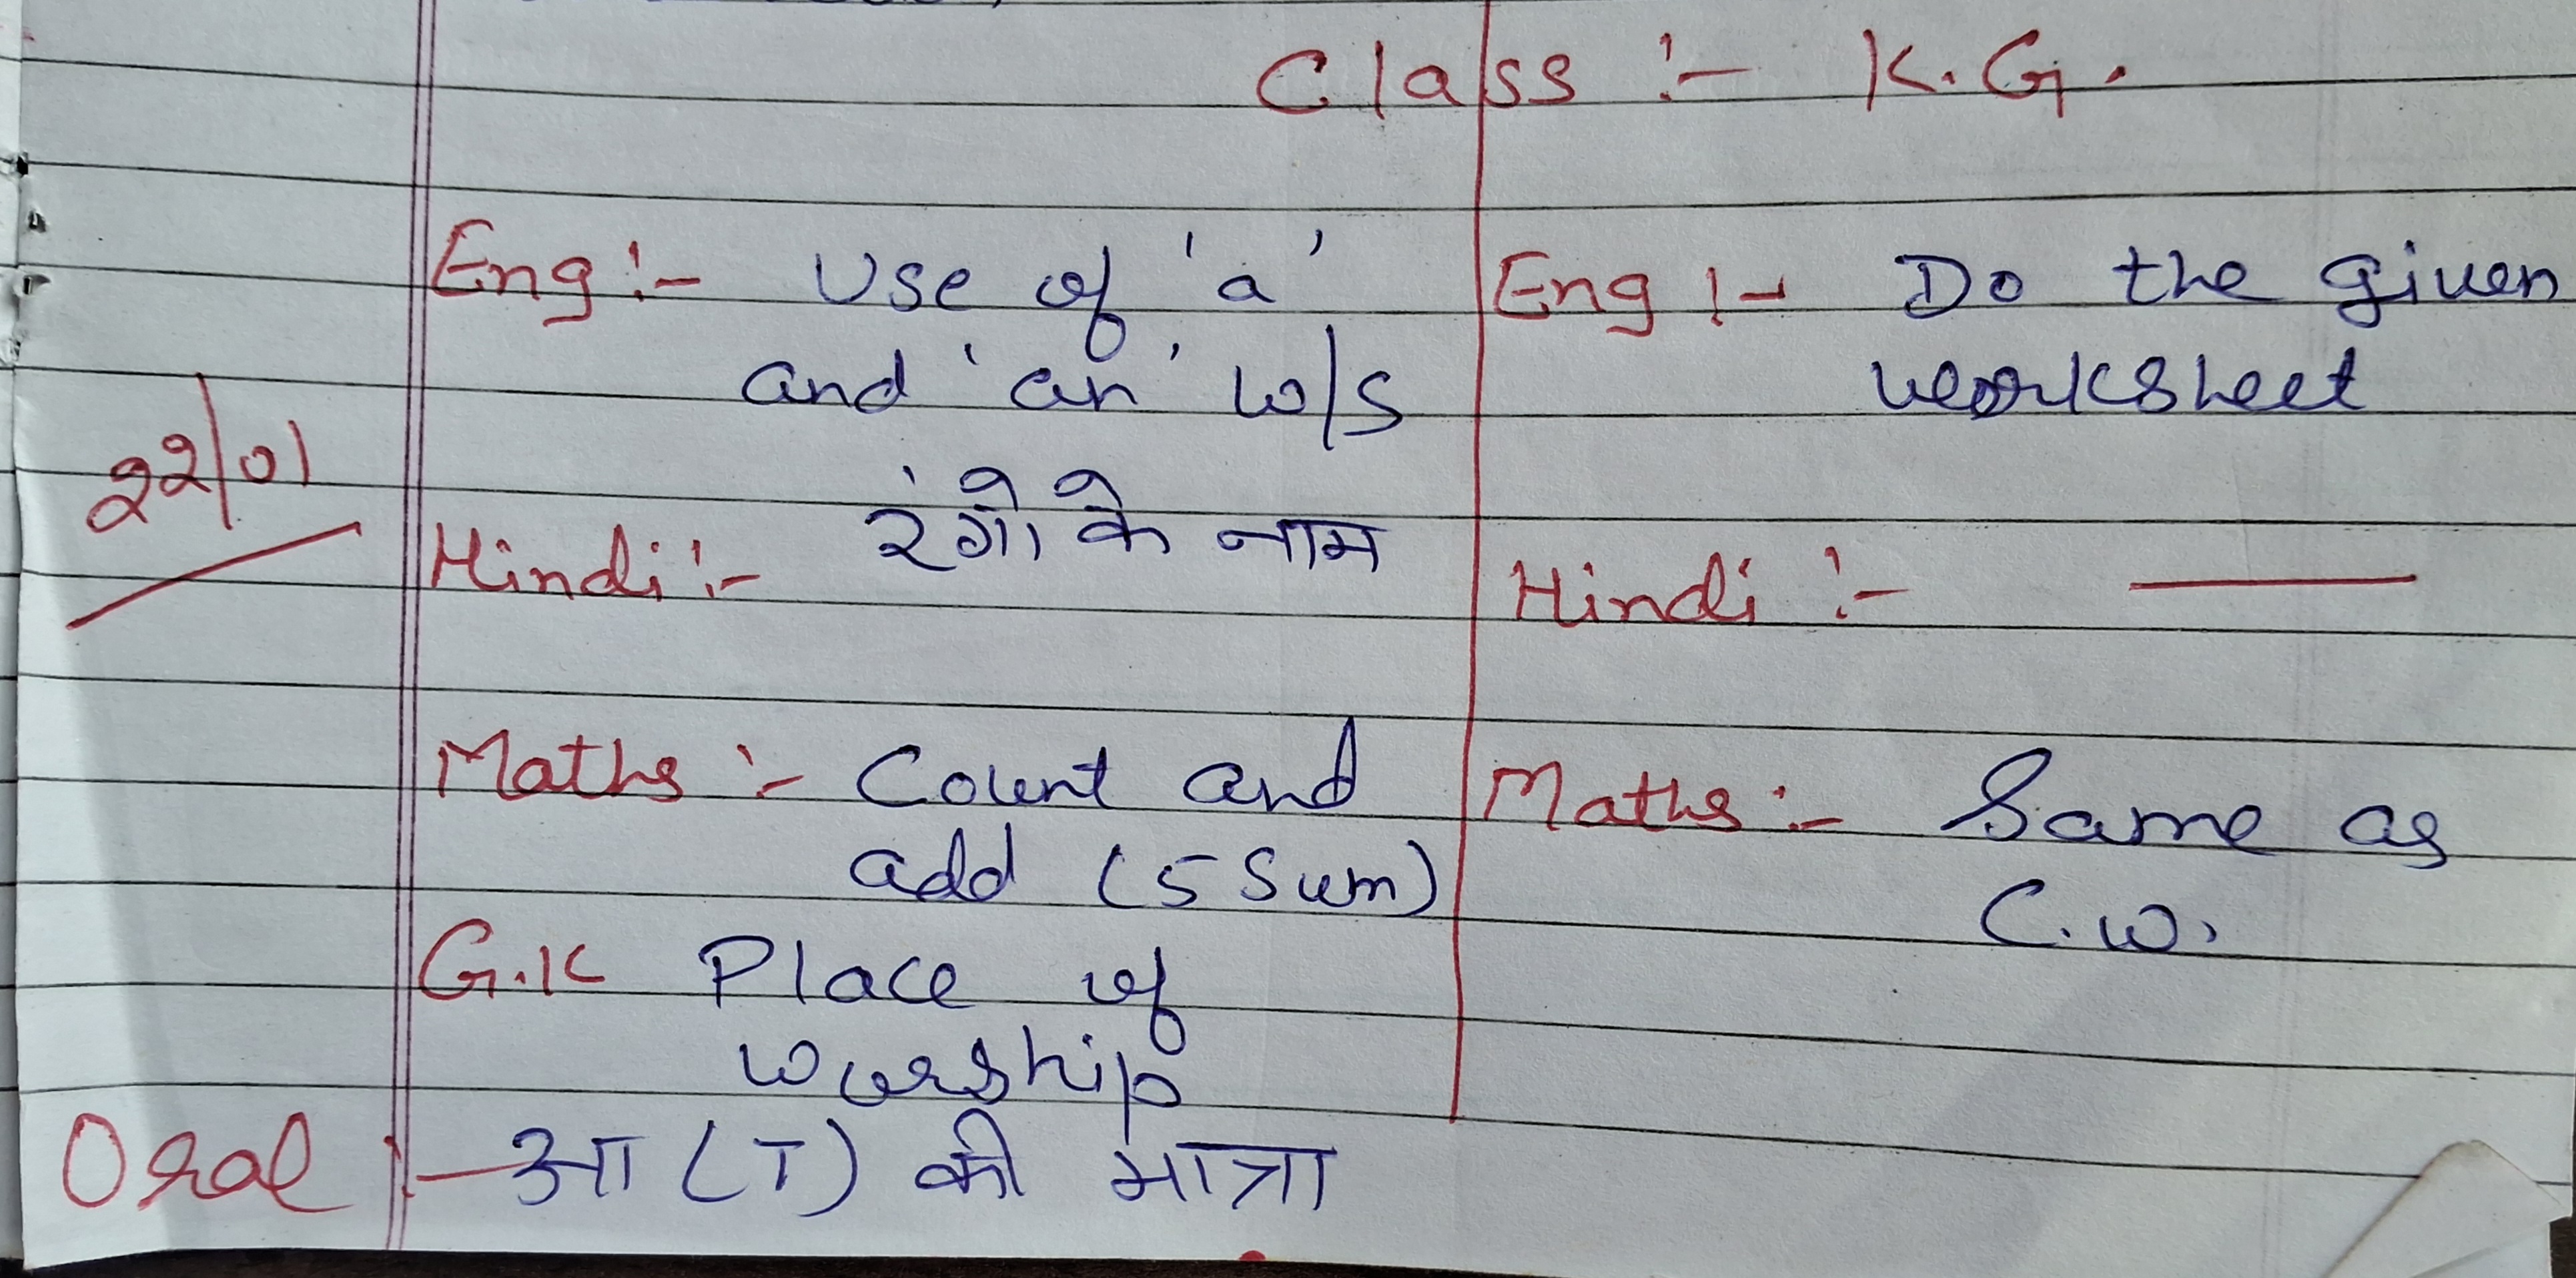 Class :- K.G.
Eng :- Use of 'a'
and 'an' w/s
22/01
Hindi :- रंगो के नाम
Maths :- Count and
add (5 Sum)
G.K Place of
worship
Eng :- Do the given
worksheet
Hindi :- —
Maths :- Same as
C.W.
Oral :- आ (ा) की मात्रा